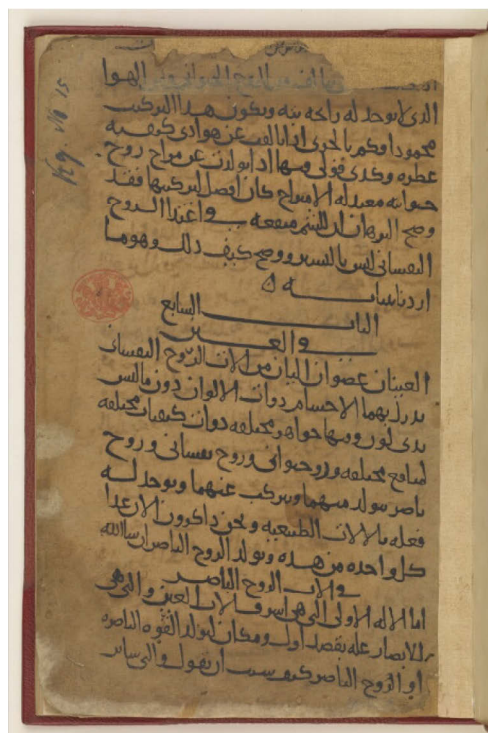 الهوا
الذى لا توجد له رائحه بته ويكون هدا التركيب
محمودا وكم بالحرى اذا تالف عن هوا دى كيفيه
عطره وكدى قولى فيها اذا تولدت عن مزاج روح
حيوانيه معتدله الامتزاج كان افضل لتركيبها فقد
وضح البرهان ان للشم منفعه فى اغتدا الروح
النفسانى ليس باليسير ووضح كيف دلك وهو ما
اردنا بيانه
الباب السابع
فى العين
العينان عضوان اليان من الات الروح النفسانى
يدرك بهما الاجسام دوات الالوان دون ما ليس
بدى لون وفيها جواهر مختلفه دوات كيفيات مختلفه
لمنافع مختلفه وروح حيوانى وروح نفسانى وروح
باصر يتولد فيهما ويتركب عنهما ويوجد له
فعله بالالات الطبيعيه ونحن داكرون الان عدا
كل واحده من هده وتولد الروح الباصر ان شا الله
فى الات الروح الباصر
اما الاله الاولى التى هى اشرف الات العين والتى هى
للابصار عله بقصد اول ومكان لتولد القوه الباصره
او الروح الباصر كيف شيت ان تقول والتى ساير